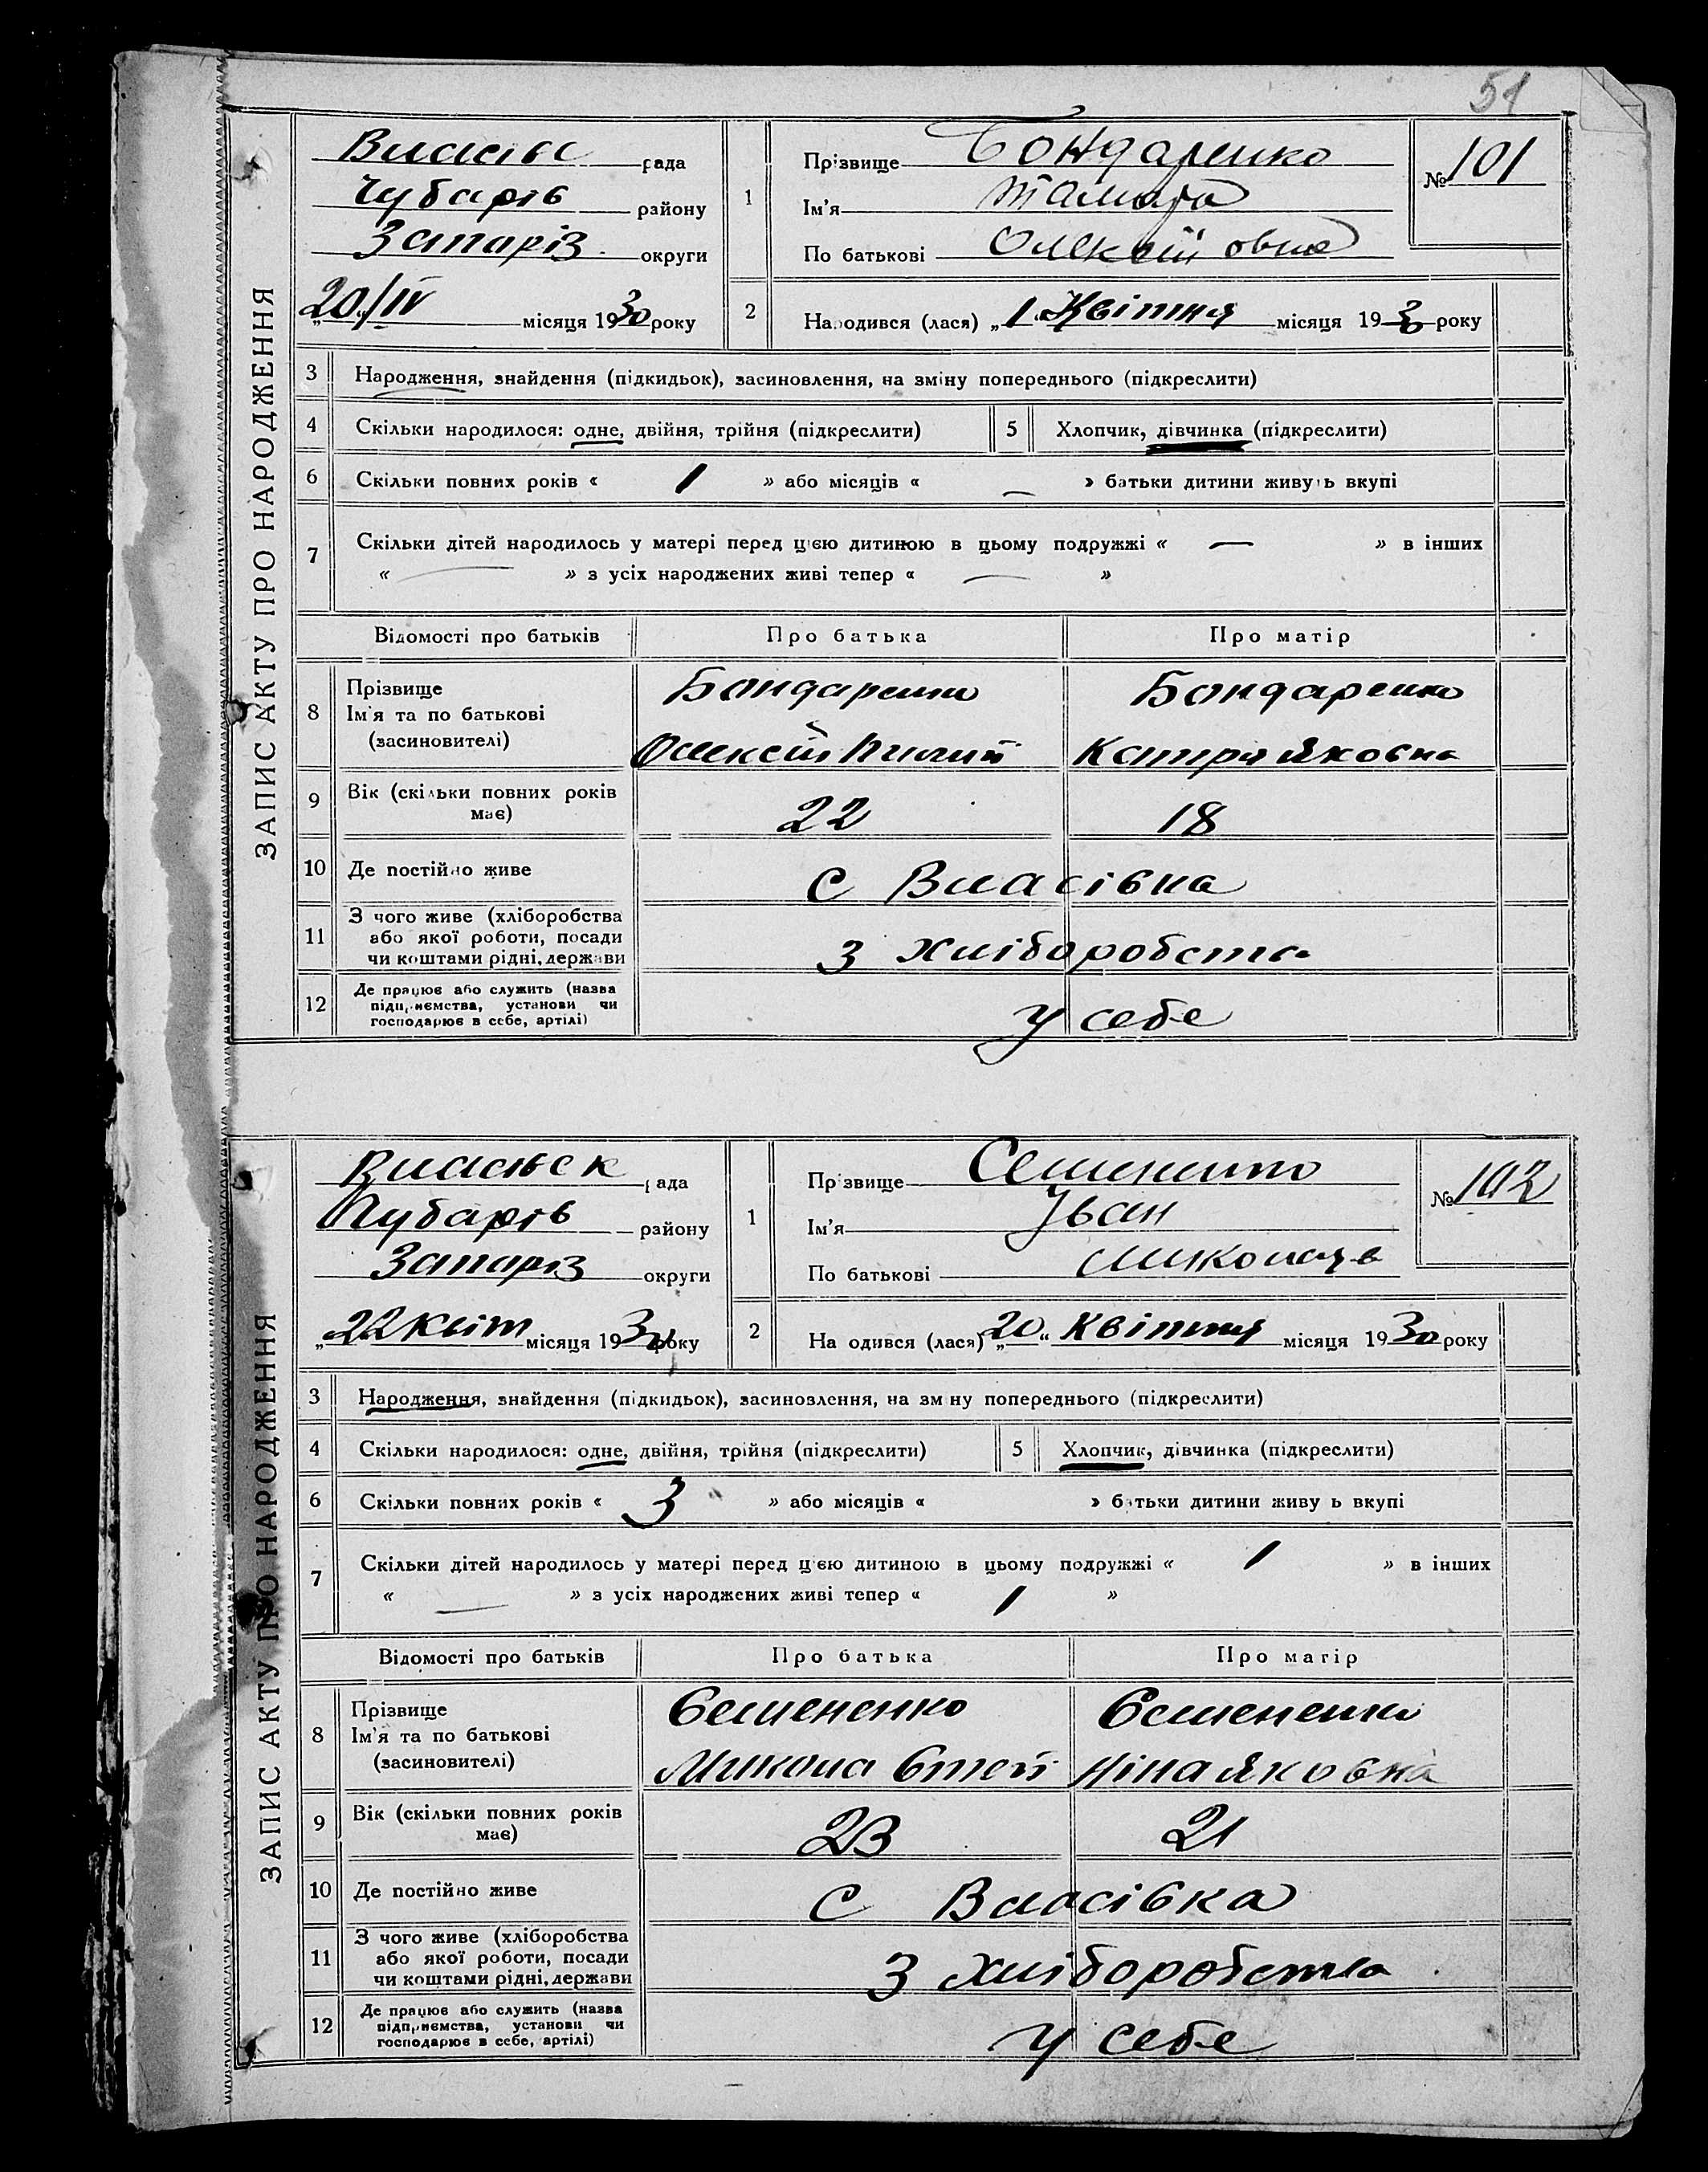 51
ЗАПИС АКТУ ПРО НАРОДЖЕННЯ
Власівс рада
Чубарів району
Запоріз округи
20/IV місяця 1930 року
1
Прізвище Бондаренко
Ім'я Тамара
По батькові Олексійовна
№ 101
2
Народився (лася) „1“ Квітня місяця 1930 року
3 Народження, знайдення (підкидьок), засиновлення, на зміну попереднього (підкреслити)
4 Скільки народилося: одне, двійня, трійня (підкреслити) 5 Хлопчик, дівчинка (підкреслити)
6 Скільки повних років « 1 » або місяців « — » батьки дитини живуть вкупі
7 Скільки дітей народилось у матері перед цією дитиною в цьому подружжі « — » в інших
« — » з усіх народжених живі тепер « — »
Відомості про батьків Про батька Про матір
8 Прізвище
Ім'я та по батькові
(засиновителі)
Бондаренко Бондаренко
Олексій Катря Яковна
9 Вік (скільки повних років
має)
22 18
10 Де постійно живе с Власівка
11 З чого живе (хліборобства
або якої роботи, посади
чи коштами рідні, держави
з хліборобства
12 Де працює або служить (назва
підприємства, установи чи
господарює в себе, артілі)
у себе
ЗАПИС АКТУ ПРО НАРОДЖЕННЯ
Власівск рада
Чубарів району
Запоріз округи
„22 Квіт місяця 1930 року
1
Прізвище Семененко
Ім'я Іван
По батькові Миколаїв
№ 102
2
Народився (лася) „20“ Квітня місяця 1930 року
3 Народження, знайдення (підкидьок), засиновлення, на зміну попереднього (підкреслити)
4 Скільки народилося: одне, двійня, трійня (підкреслити) 5 Хлопчик, дівчинка (підкреслити)
6 Скільки повних років « 3 » або місяців « » батьки дитини живуть вкупі
7 Скільки дітей народилось у матері перед цією дитиною в цьому подружжі « 1 » в інших
« — » з усіх народжених живі тепер « 1 »
Відомості про батьків Про батька Про матір
8 Прізвище
Ім'я та по батькові
(засиновителі)
Семененко Семененко
Микола Ніна Яковна
9 Вік (скільки повних років
має)
23 21
10 Де постійно живе с Власівка
11 З чого живе (хліборобства
або якої роботи, посади
чи коштами рідні, держави
З хліборобства
12 Де працює або служить (назва
підприємства, установи чи
господарює в себе, артілі)
у себе